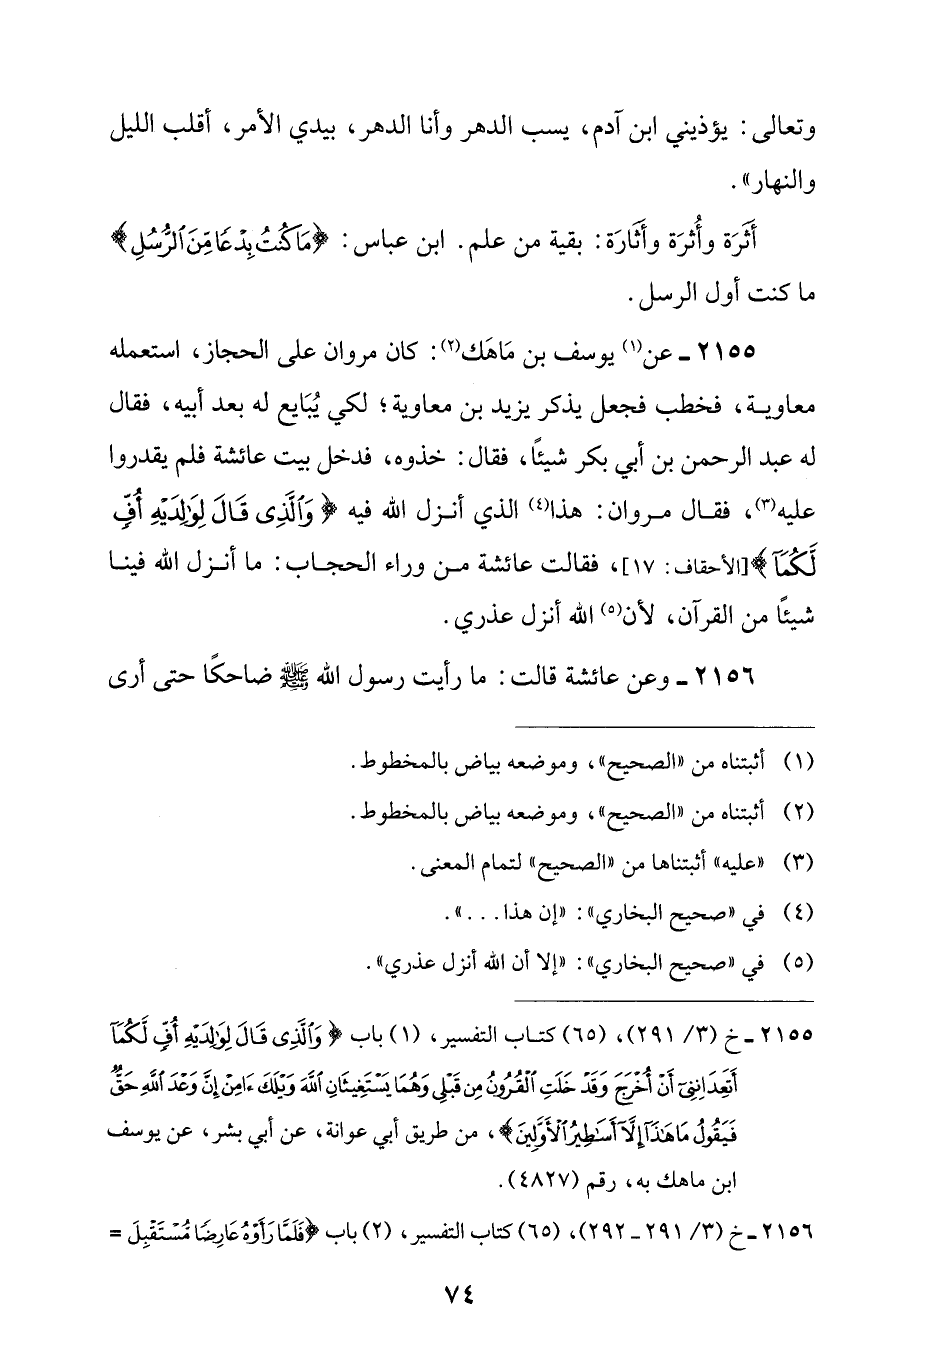 وتعالى: يؤذيني ابن آدم، يسب الدهر وأنا الدهر، بيدي الأمر، أقلب الليل
والنهار».
أَثَرَة وأُثرَة وأَثَارَة: بقية من علم. ابن عباس: ﴿مَا كُنتُ بِدْعًا مِّنَ ٱلرُّسُلِ﴾
ما كنت أول الرسل.
٢١٥٥ ـ عن(١) يوسف بن مَاهَك(٢): كان مروان على الحجاز، استعمله
معاوية، فخطب فجعل يذكر يزيد بن معاوية؛ لكي يُبَايع له بعد أبيه، فقال
له عبد الرحمن بن أبي بكر شيئًا، فقال: خذوه، فدخل بيت عائشة فلم يقدروا
عليه(٣)، فقال مروان: هذا(٤) الذي أنزل الله فيه ﴿وَٱلَّذِى قَالَ لِوَٰلِدَيْهِ أُفٍّ
لَّكُمَآ﴾[الأحقاف: ١٧]، فقالت عائشة من وراء الحجاب: ما أنزل الله فينا
شيئًا من القرآن، لأن(٥) الله أنزل عذري.
٢١٥٦ ـ وعن عائشة قالت: ما رأيت رسول الله ﷺ ضاحكًا حتى أرى
(١) أثبتناه من «الصحيح»، وموضعه بياض بالمخطوط.
(٢) أثبتناه من «الصحيح»، وموضعه بياض بالمخطوط.
(٣) «عليه» أثبتناها من «الصحيح» لتمام المعنى.
(٤) في «صحيح البخاري»: «إن هذا...».
(٥) في «صحيح البخاري»: «إلا أن الله أنزل عذري».
٢١٥٥ ـ خ (٣/ ٢٩١)، (٦٥) كتاب التفسير، (١) باب ﴿وَٱلَّذِى قَالَ لِوَٰلِدَيْهِ أُفٍّ لَّكُمَآ
أَتَعِدَانِنِىٓ أَنْ أُخْرَجَ وَقَدْ خَلَتِ ٱلْقُرُونُ مِن قَبْلِى وَهُمَا يَسْتَغِيثَانِ ٱللَّهَ وَيْلَكَ ءَامِنْ إِنَّ وَعْدَ ٱللَّهِ حَقٌّ
فَيَقُولُ مَا هَٰذَآ إِلَّآ أَسَٰطِيرُ ٱلْأَوَّلِينَ﴾، من طريق أبي عوانة، عن أبي بشر، عن يوسف
ابن ماهك به، رقم (٤٨٢٧).
٢١٥٦ ـ خ (٣/ ٢٩١ ـ ٢٩٢)، (٦٥) كتاب التفسير، (٢) باب ﴿فَلَمَّا رَأَوْهُ عَارِضًا مُّسْتَقْبِلَ =
٧٤